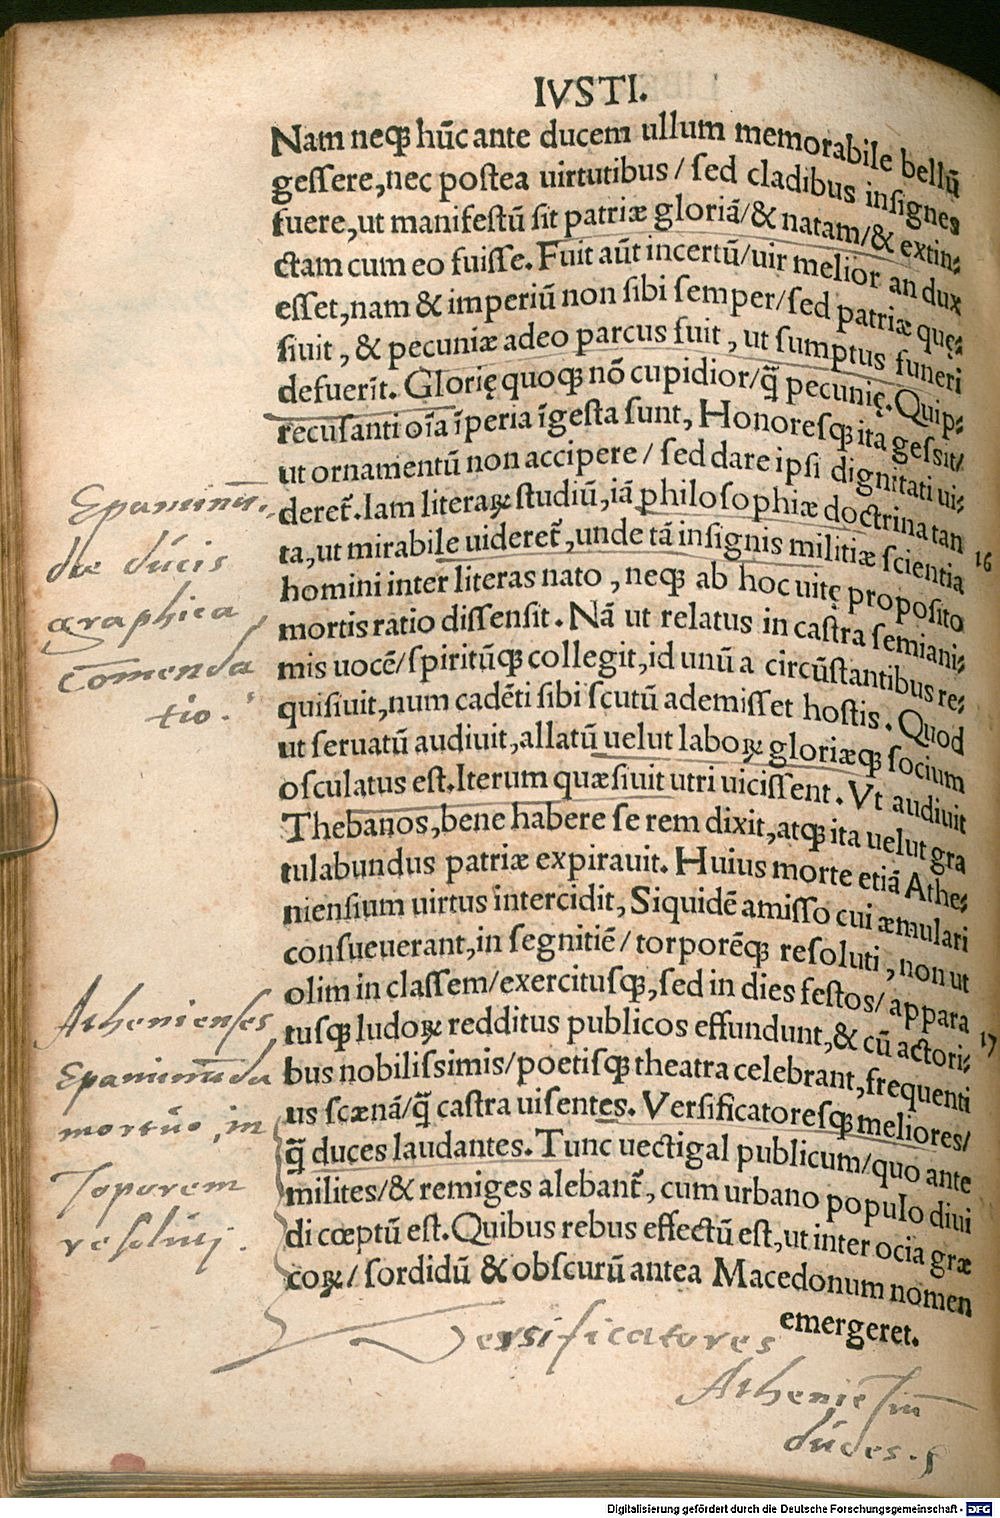 IVSTI.
Nam neqꝫ hūc ante ducem ullum memorabile bellū
gessere,nec postea uirtutibus / sed cladibus insignes
fuere,ut manifestū sit patriæ gloriā/& natam/& extin⸗
ctam cum eo fuisse. Fuit aūt incertū/uir melior an dux
esset,nam & imperiū non sibi semper/sed patriæ quę⸗
siuit , & pecuniæ adeo parcus fuit , ut sumptus funeri
defuerīt. Glorię quoqꝫ nō cupidior/q̄ pecunię. Quip⸗
recusanti oīa īperia īgesta sunt, Honoresqꝫ ita gessit/
ut ornamentū non accipere / sed dare ipsi dignitati ui⸗
deret̄. Iam literaꝝ studiū, iā philosophiæ doctrina tan
ta, ut mirabile uideret̄, unde tā insignis militiæ scientia
homini inter literas nato , neqꝫ ab hoc uitę proposito
mortis ratio dissensit. Nā ut relatus in castra semiani⸗
mis uocē/spiritūqꝫ collegit, id unū a circūstantibus re⸗
quisiuit, num cadēti sibi scutū ademisset hostis. Quod
ut seruatū audiuit, allatū uelut laboꝝ gloriæqꝫ socium
osculatus est. Iterum quæsiuit utri uicissent. Vt audiuit
Thebanos, bene habere se rem dixit, atqꝫ ita uelut gra
tulabundus patriæ expirauit. Huius morte etiā Athe⸗
niensium uirtus intercidit, Siquidē amisso cui æmulari
consueuerant, in segnitiē / torporēqꝫ resoluti , non ut
olim in classem/exercitusqꝫ, sed in dies festos/ appara
tusqꝫ ludoꝝ redditus publicos effundunt, & cū actori⸗
bus nobilissimis/poetisqꝫ theatra celebrant, frequenti
us scænā/q̄ castra uisentes. Versificatoresqꝫ meliores/
q̄ duces laudantes. Tunc uectigal publicum/quo ante
milites/& remiges alebant̄, cum urbano populo diui
di cœptū est. Quibus rebus effectū est, ut inter ocia græ
coꝝ/ sordidū & obscurū antea Macedonum nomen
emergeret.
Epaminū⸗
dæ dúcis
graphica
com̄enda
tio.
16
Athenienses
Epaminūda
mortúo, in
Toporem
resolúti.
17
Versificatores
Atheniēsiū
dúces.
Digitalisierung gefördert durch die Deutsche Forschungsgemeinschaft - DFG